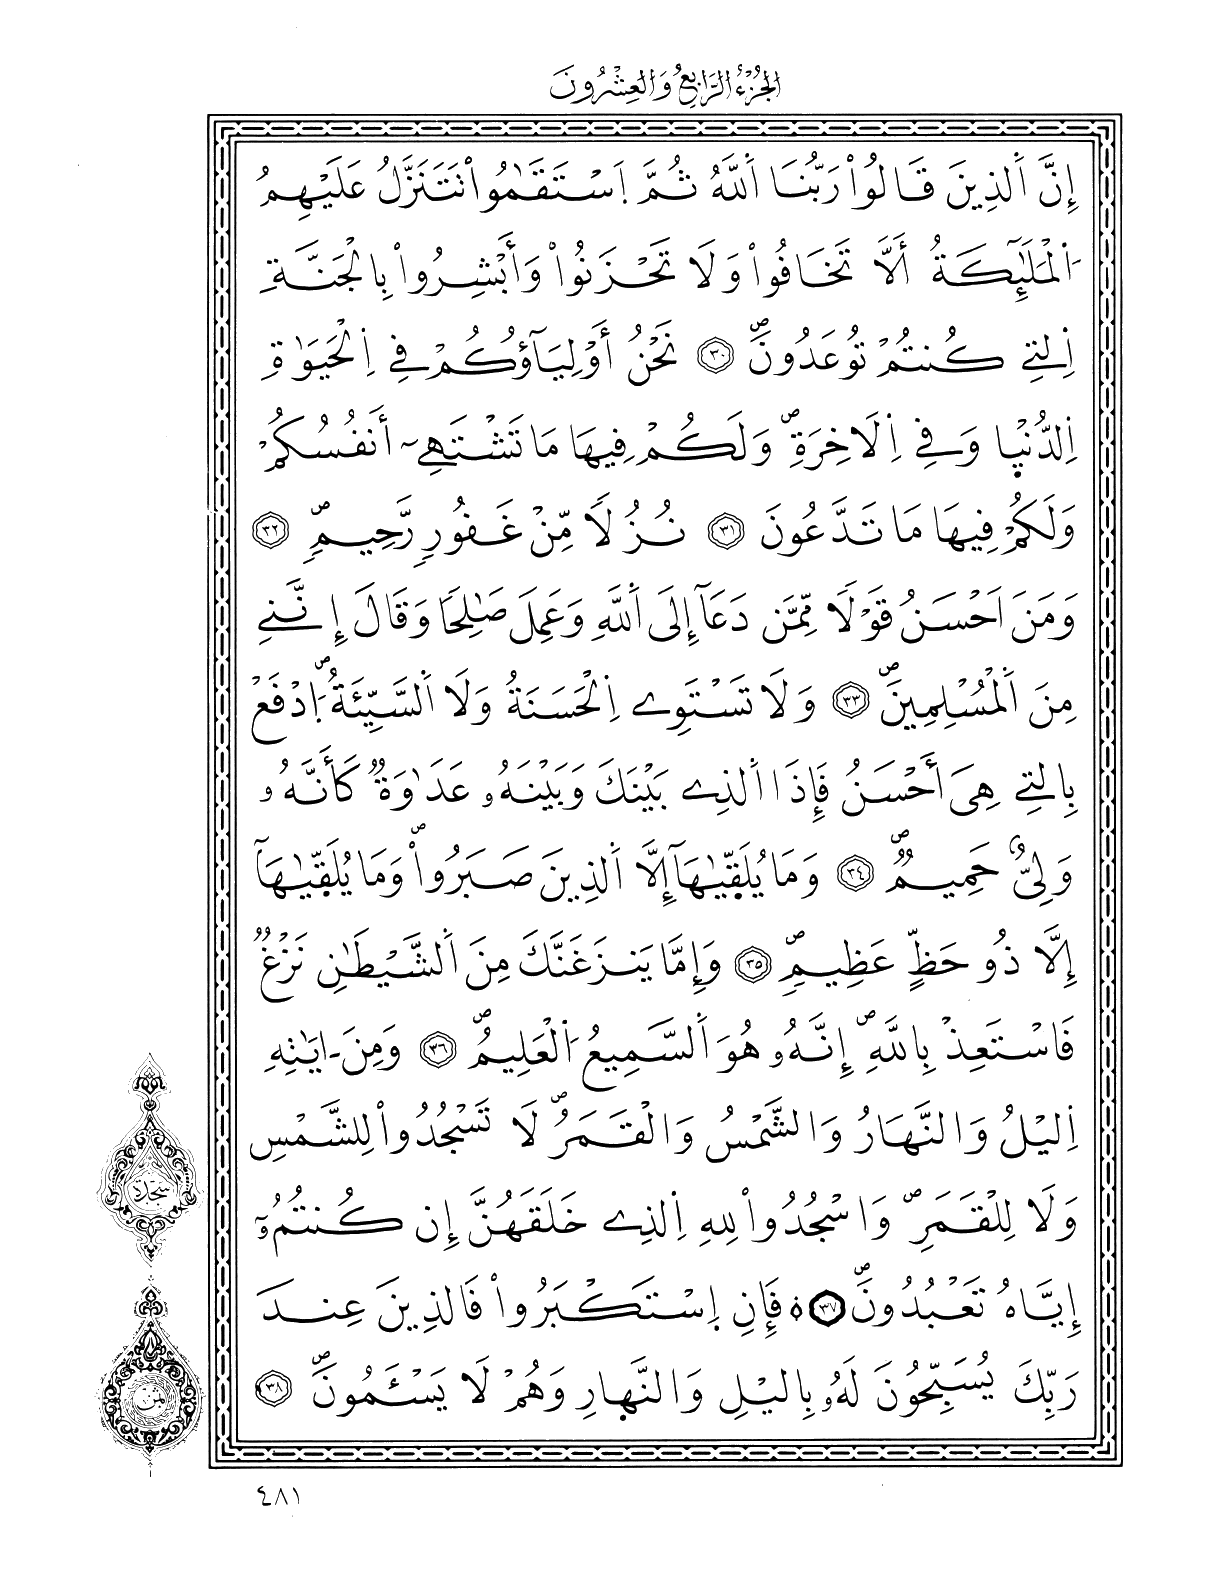 الجُزْءُ الرَّابِعُ وَالعِشْرُونَ
إِنَّ اَ۬لذِينَ قَالُواْ رَبُّنَا اَ۬للَّهُ ثُمَّ اَ۪سْتَقَٰمُواْ تَتَنَزَّلُ عَلَيْهِمُ
اُ۬لْمَلَٰٓئِكَةُ أَلَّا تَخَافُواْ وَلَا تَحْزَنُواْ وَأَبْشِرُواْ بِالْجَنَّةِ
اِ۬لتِے كُنتُمْ تُوعَدُونَۖ ٣٠ نَحْنُ أَوْلِيَآؤُكُمْ فِے اِ۬لْحَيَوٰةِ
اِ۬لدُّنْي۪ا وَفِے اِ۬لَاخِرَةِۖ وَلَكُمْ فِيهَا مَا تَشْتَهِےٓ أَنفُسُكُمْ
وَلَكُمْ فِيهَا مَا تَدَّعُونَ ٣١ نُزُلاٗ مِّنْ غَفُورٖ رَّحِيمٖۖ ٣٢
وَمَنَ اَحْسَنُ قَوْلاٗ مِّمَّن دَعَآ إِلَى اَ۬للَّهِ وَعَمِلَ صَٰلِحاٗ وَقَالَ إِنَّنِے
مِنَ اَ۬لْمُسْلِمِينَۖ ٣٣ وَلَا تَسْتَوِے اِ۬لْحَسَنَةُ وَلَا اَ۬لسَّيِّئَةُۖ اُ۪دْفَعْ
بِالتِے هِيَ أَحْسَنُ فَإِذَا اَ۬لذِے بَيْنَكَ وَبَيْنَهُۥ عَدَٰوَةٞ كَأَنَّهُۥ
وَلِيٌّ حَمِيمٞۖ ٣٤ وَمَا يُلَقّ۪يٰهَآ إِلَّا اَ۬لذِينَ صَبَرُواْۖ وَمَا يُلَقّ۪يٰهَآ
إِلَّا ذُو حَظٍّ عَظِيمٖۖ ٣٥ وَإِمَّا يَنزَغَنَّكَ مِنَ اَ۬لشَّيْطَٰنِ نَزْغٞ
فَاسْتَعِذْ بِاللَّهِۖ إِنَّهُۥ هُوَ اَ۬لسَّمِيعُ اُ۬لْعَلِيمُۖ ٣٦ وَمِنَ اٰيَٰتِهِ
اِ۬ليْلُ وَالنَّهَارُ وَالشَّمْسُ وَالْقَمَرُۖ لَا تَسْجُدُواْ لِلشَّمْسِ
وَلَا لِلْقَمَرِۖ وَاسْجُدُواْ لِلهِ اِ۬لذِے خَلَقَهُنَّ إِن كُنتُمُۥٓ
إِيَّاهُ تَعْبُدُونَۖ ٣٧ ۩ فَإِنِ اِ۪سْتَكْبَرُواْ فَالذِينَ عِندَ
رَبِّكَ يُسَبِّحُونَ لَهُۥ بِاليْلِ وَالنَّه۪ارِ وَهُمْ لَا يَسْـَٔمُونَۖ ٣٨
سجدة
ثمن
٤٨١